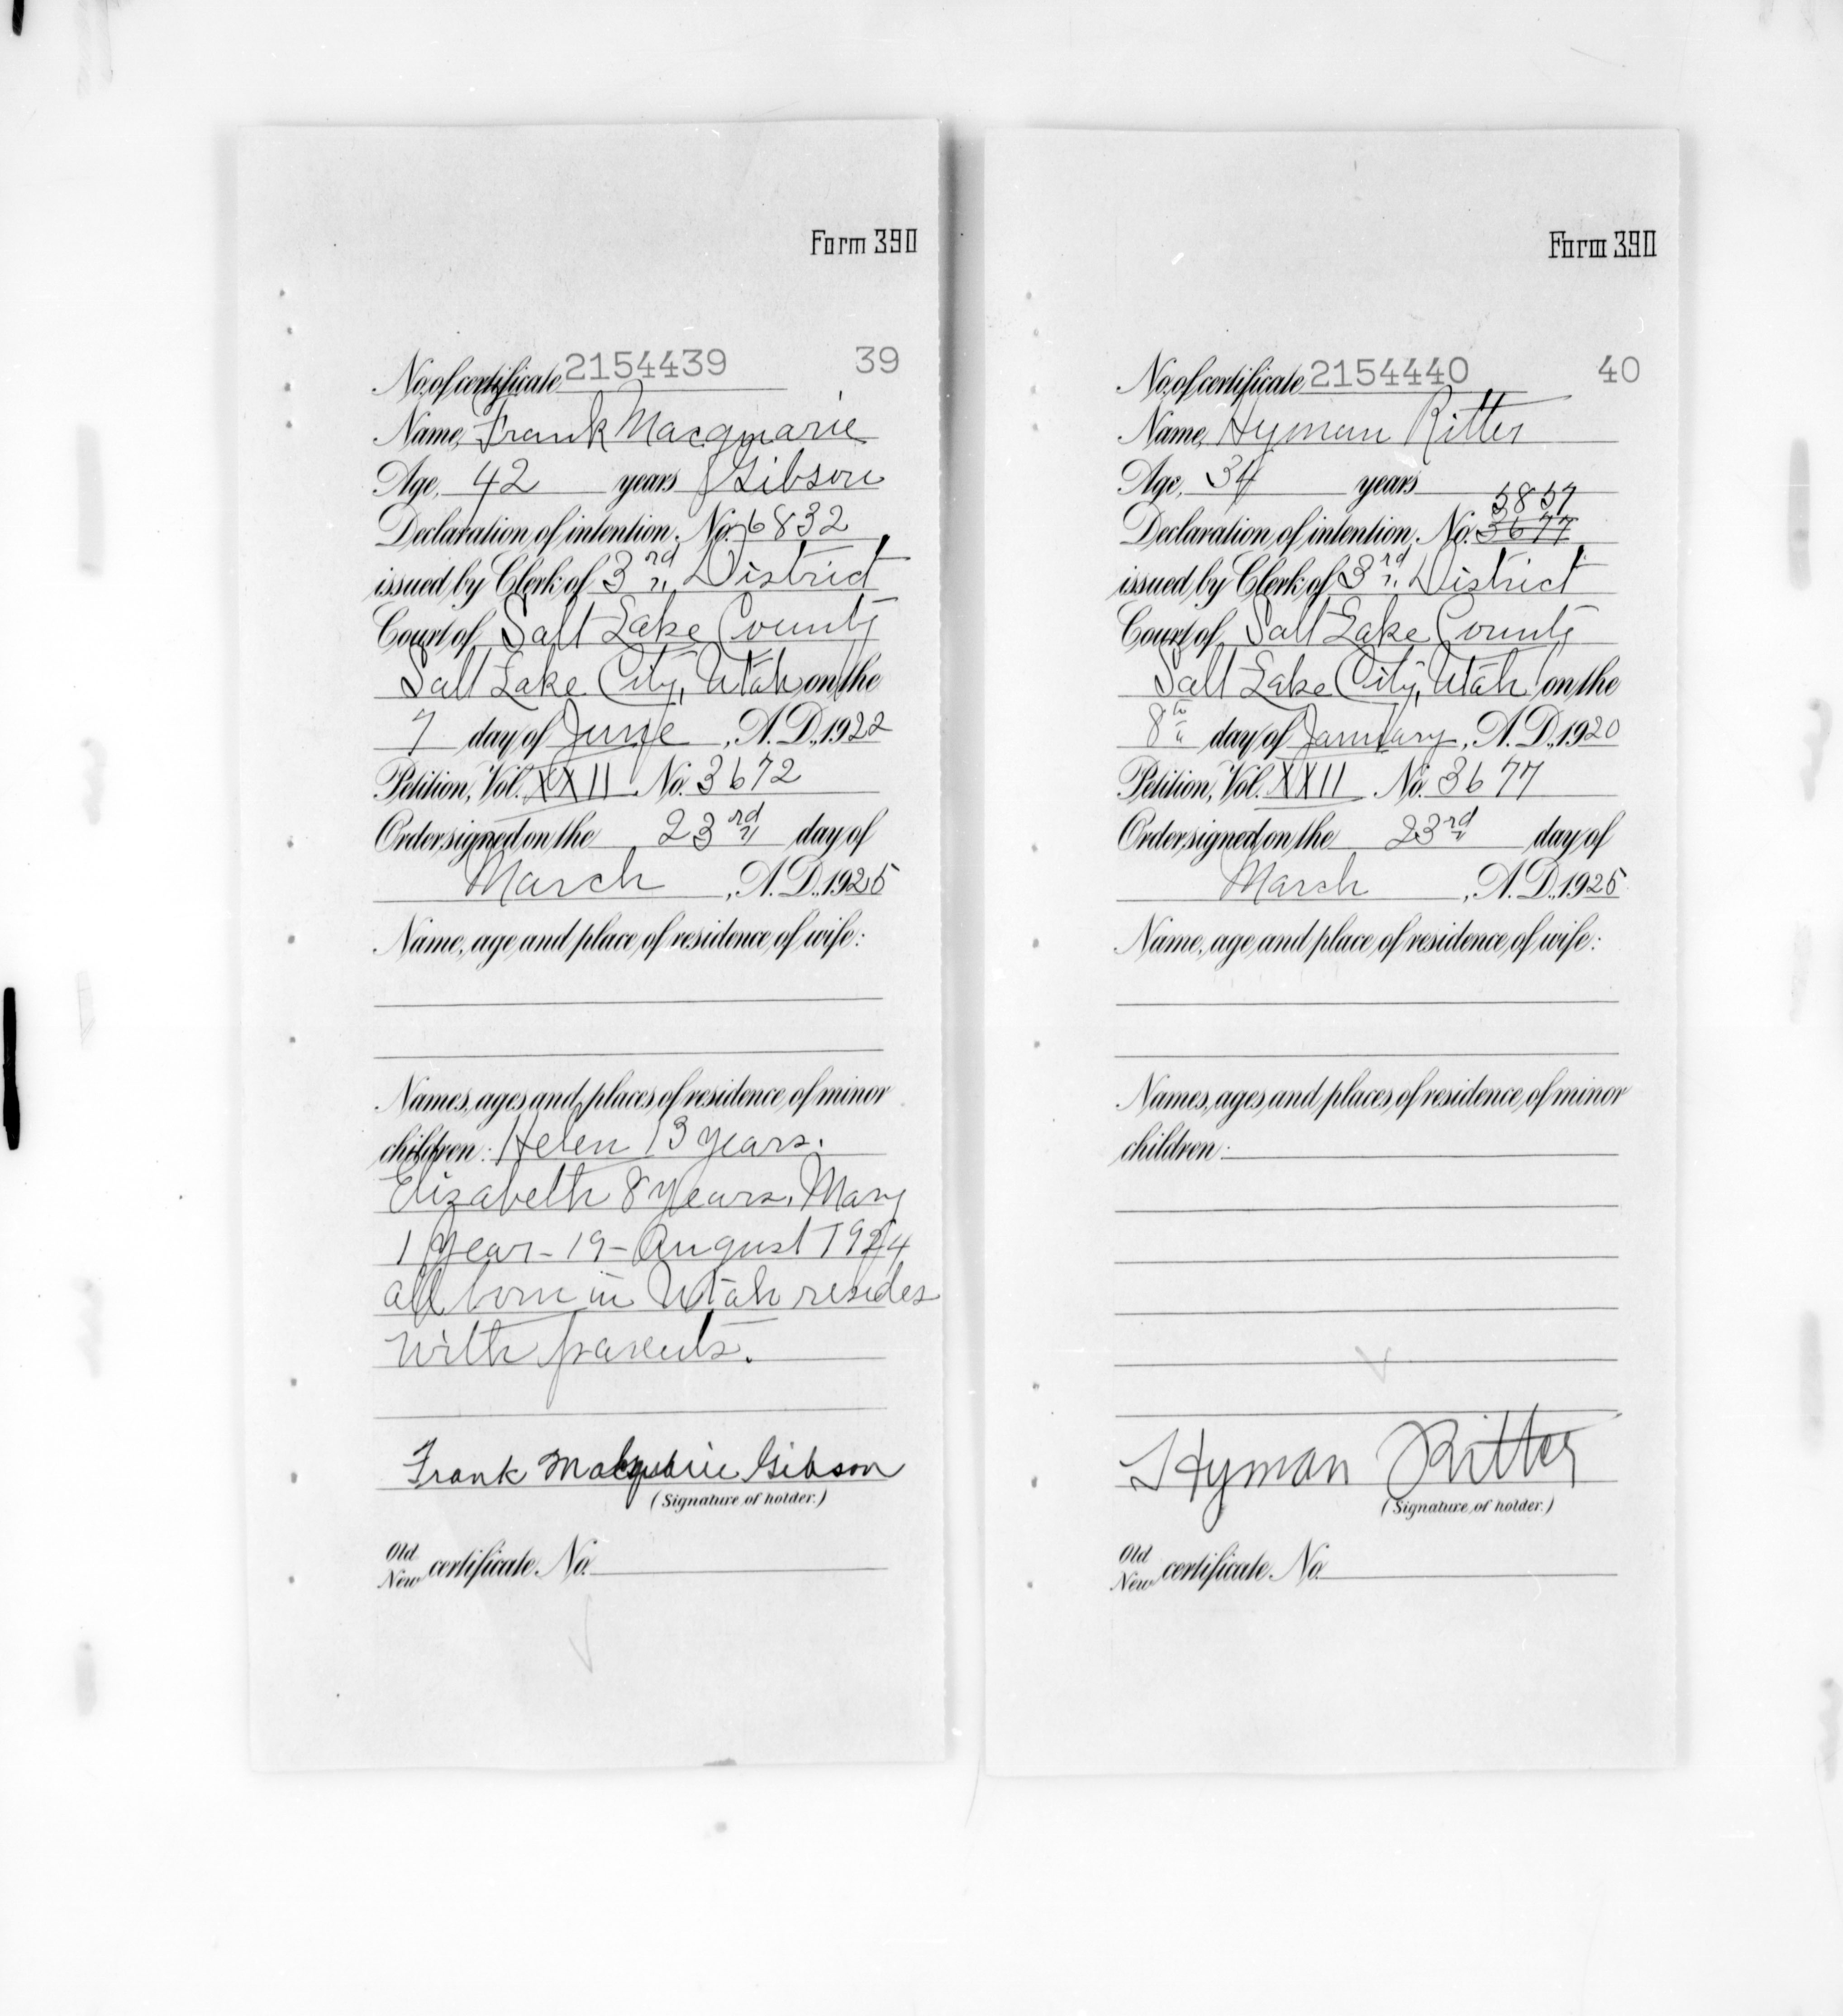 Form 390
No. of certificate 2154439 39
Name, Frank Macqmarie
Age, 42 years Gibson
Declaration of intention, No. 6832
issued by Clerk of 3rd District
Court of Salt Lake County
Salt Lake City, Utah on the
7 day of June, A.D., 1922
Petition, Vol. XXII No. 3672
Order signed on the 23rd day of
March, A.D., 1925
Name, age and place of residence of wife:
Names, ages and places of residence of minor
children: Helen 13 years.
Elizabeth 8 years, Mary
1 year - 19 - August 1924
all born in Utah resides
with parents.
Frank Macquarie Gibson
(Signature of holder.)
Old
New certificate No.
Form 390
No. of certificate 2154440 40
Name, Hyman Ritter
Age, 34 years
5857
Declaration of intention, No. 3677
issued by Clerk of 3rd District
Court of Salt Lake County
Salt Lake City, Utah on the
8th day of January, A.D., 1920
Petition, Vol. XXII No. 3677
Order signed on the 23rd day of
March, A.D., 1925
Name, age and place of residence of wife:
Names, ages and places of residence of minor
children:
Hyman Ritter
(Signature of holder.)
Old
New certificate No.